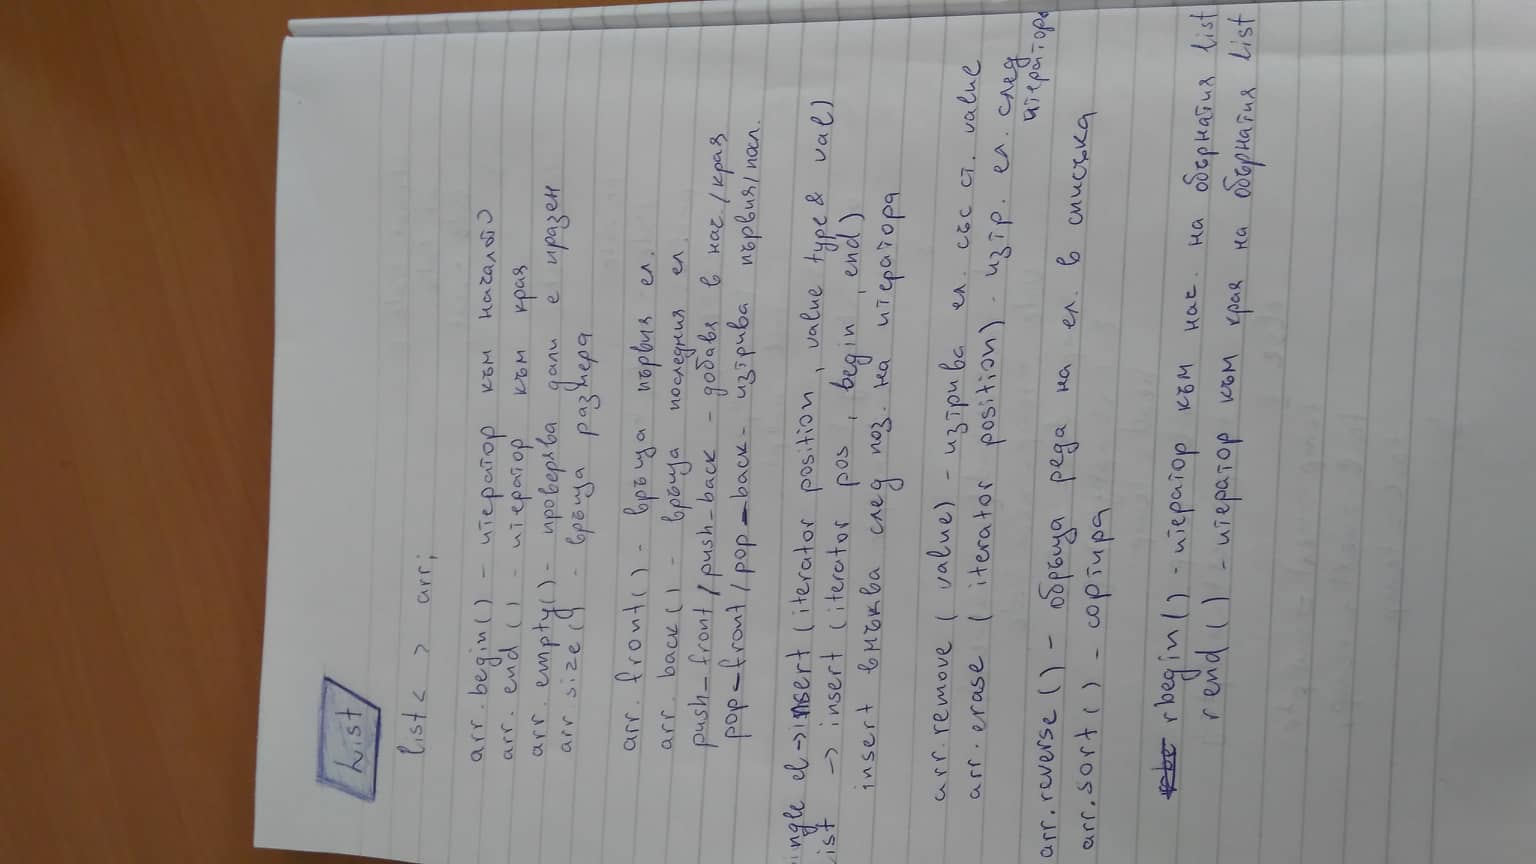 List
list < > arr;
arr. begin() - итератор към началото
arr. end () - итератор към края
arr. empty() - проверява дали е празен
arr. size() - връща размера
arr. front() - връща първия ел.
arr. back() - връща последния ел.
push_front/push-back - добавя в нач./края
pop_front/pop_back - изтрива първия/посл.
ingle el -> insert (iterator position, value type & val)
ist -> insert (iterator pos, begin, end)
insert вмъква след поз. на итератора
arr.remove (value) - изтрива ел. със ст. value
arr. erase (iterator position) - изтр. ел. след
итератора
arr.reverse() - обръща реда на ел. в списъка
arr.sort () - сортира
rbegin() - итератор към нач. на обърнатия list
rend () - итератор към края на обърнатия list